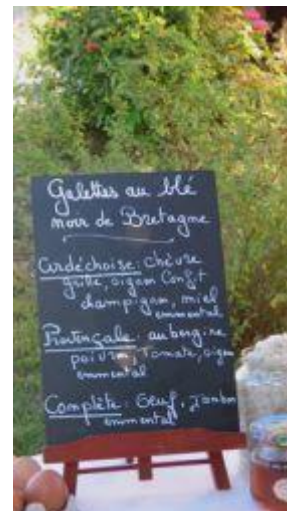 Galettes au blé
noir de Bretagne
Ardéchoise: Chèvre
grillé, oignon Confit
champignon, miel
emmental
Provençale: aubergine
poivron, Tomate, oignon
emmental
Complète: Oeuf, Jambon
emmental